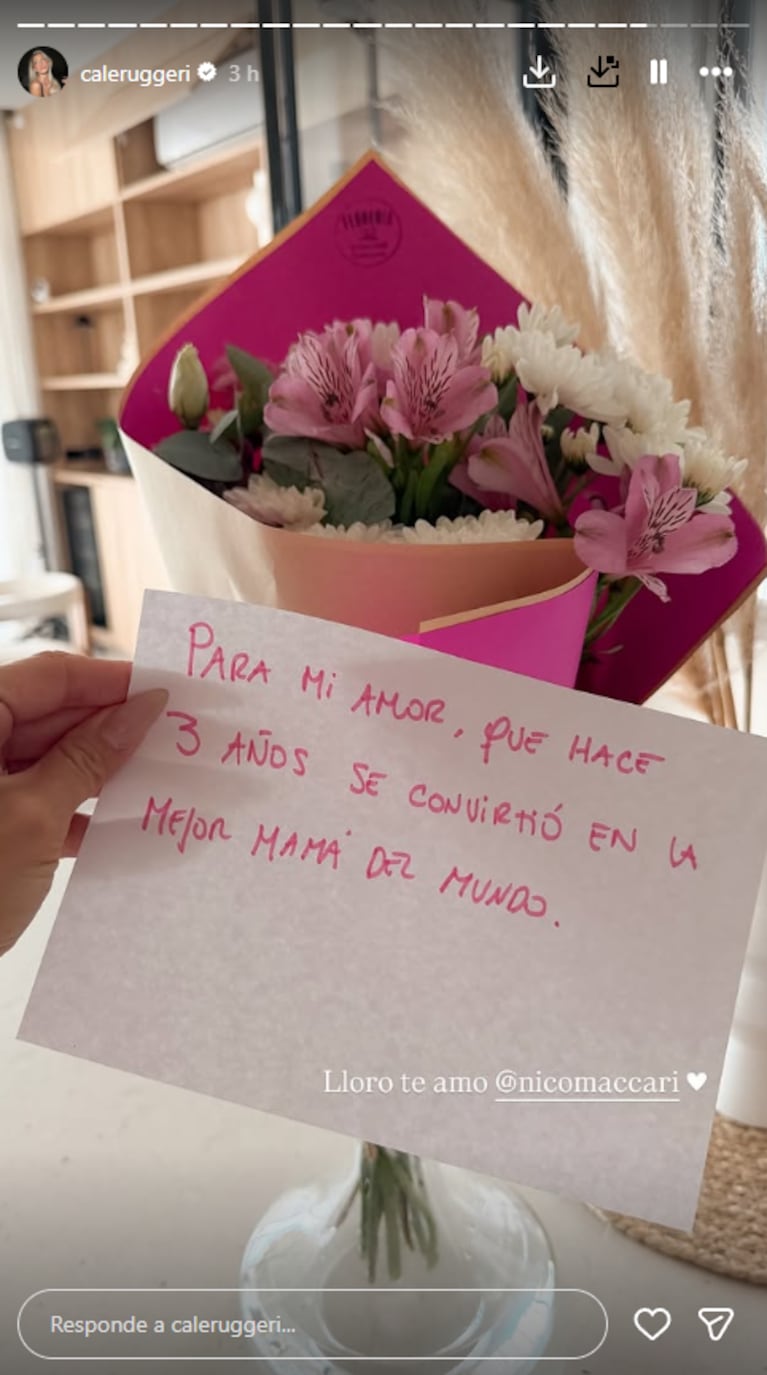 caleruggeri 3 h
PARA Mi AMOR, QUE HACE
3 AÑOS SE CONVIRTIÓ EN LA
MEJOR MAMÁ DEL MUNDO.
Lloro te amo @nicomaccari
Responde a caleruggeri...